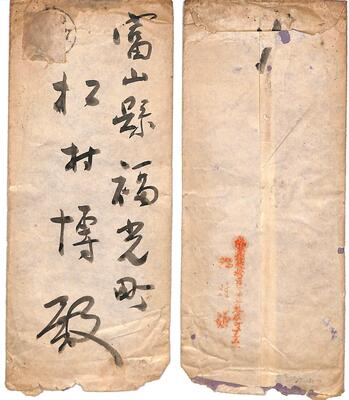 富山縣福光町
松村博殿